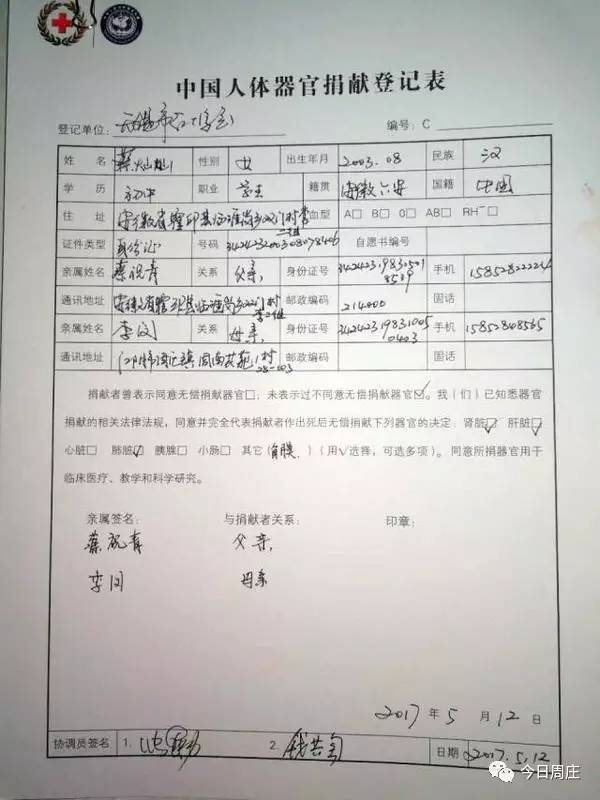 中国人体器官捐献登记表
登记单位: 无锡市红十字会 编号: C
姓 名 蔡灿灿 性别 女 出生年月 2003.08 民族 汉
学 历 初中 职业 学生 籍贯 安徽六安 国籍 中国
住 址 安徽省 血型 A□ B□ O□ AB□ RH⁻□
证件类型 身份证 号码 自愿书编号
亲属姓名 蔡祝青 关系 父亲 身份证号 手机
通讯地址 安徽省 邮政编码 214000 固话
亲属姓名 李闪 关系 母亲 身份证号 手机
通讯地址 邮政编码 固话
捐献者曾表示同意无偿捐献器官□; 未表示过不同意无偿捐献器官☑。我(们)已知悉器官
捐献的相关法律法规,同意并完全代表捐献者作出死后无偿捐献下列器官的决定: 肾脏☑ 肝脏☑
心脏□ 肺脏☑ 胰腺□ 小肠□ 其它(角膜)(用√选择,可选多项)。同意所捐器官用于
临床医疗、教学和科学研究。
亲属签名: 与捐献者关系: 印章:
蔡祝青 父亲
李闪 母亲
2017 年 5 月 12 日
协调员签名 1. 2. 日期 2017.5.12
今日周庄